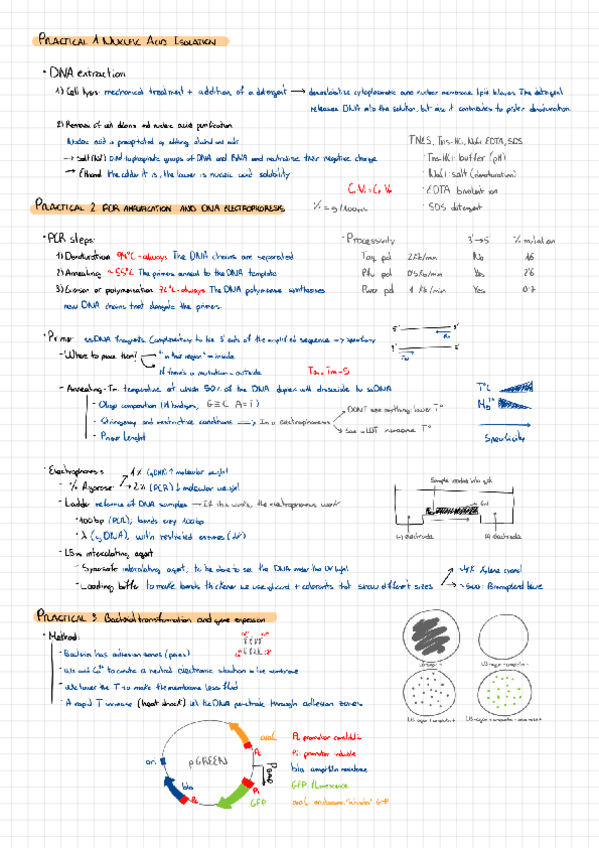 PRACTICAL 1 NUCLEIC ACID ISOLATION
• DNA extraction
1) Cell lysis: mechanical treatment + addition of a detergent → cytoplasmatic and nuclear membrane lipid bilayers. The detergent
releases DNA into the solution, but also it contributes to protein denaturation.
2) Removal of cell debris and nucleic acid purification
Nucleic acid is precipitated by adding alcohol and salts
→ Salt (NaCl) bind to phosphate groups of DNA and RNA and neutralise their negative charge
→ Ethanol the colder it is, the lower is nucleic acid solubility
TNES, Tris-HCl, NaCl, EDTA, SDS
· Tris-HCl: buffer (pH)
· NaCl: salt (denaturation)
· EDTA
· SDS detergent
C₁V₁ = C₂V₂
% = g/100mL
PRACTICAL 2 PCR AMPLIFICATION AND DNA ELECTROPHORESIS
• PCR steps:
1) Denaturation 94°C - always The DNA chains are separated
2) Annealing ~55°C The primers anneal to the DNA template
3) Extension or polymerisation 72°C - always The DNA polymerase synthesises
new DNA chains that elongate the primers
• Processivity 3'→5' % mutation
Taq pol 2Kb/min No 16
Pfu pol 0'5Kb/min Yes 2'6
Pwo pol 1 Kb/min Yes 0'7
• Primer ssDNA fragments. Complementary to the 3' ends of the amplified sequence
- Where to place them? "in the region" = inside
if there's a mutation = outside
Ta = Tm - 5
- Annealing - Tm: temperature at which 50% of the DNA duplex will dissociate to ssDNA
- Oligo composition (H bridges, G≡C A=T)
- Stringency and restrictive conditions → In a electrophoresis
DON'T see anything: lower T°
See a LOT: increase T°
- Primer Lenght
5' 3'
3' 5'
T°C
Mg²⁺
Specificity
• Electrophoresis
- % Agarose 1% (gDNA) ↑ molecular weight
2% (PCR) ↓ molecular weight
- Ladder reference of DNA samples → If this works, the electrophoresis works
· 100bp (PCR), bands every 100bp
· λ (gDNA), with restricted enzymes
- Use intercalating agent
· Sybrsafe intercalating agent, to be able to see the DNA under the UV light
- Loading buffer to make bands thickener we use glycerol + colorants that show different sizes
Xylene cyanol
Bromophenol blue
Sample loaded into gel
Gel
(-) electrode
(+) electrode
PRACTICAL 3 Bacterial transformation and gene expression
• Method:
- Bacteria has adhesion zones (pores)
- We add Ca²⁺ to create a neutral electronic situation in the membrane
- We lower the T to make the membrane less fluid
- A rapid T increase (heat shock) let the DNA penetrate through adhesion zones
pGREEN
ori
bla
GFP
araC
Pc
Pi
PBAD
Pc promoter constitutive
Pi promoter inducible
bla ampicillin resistance
GFP fluorescence